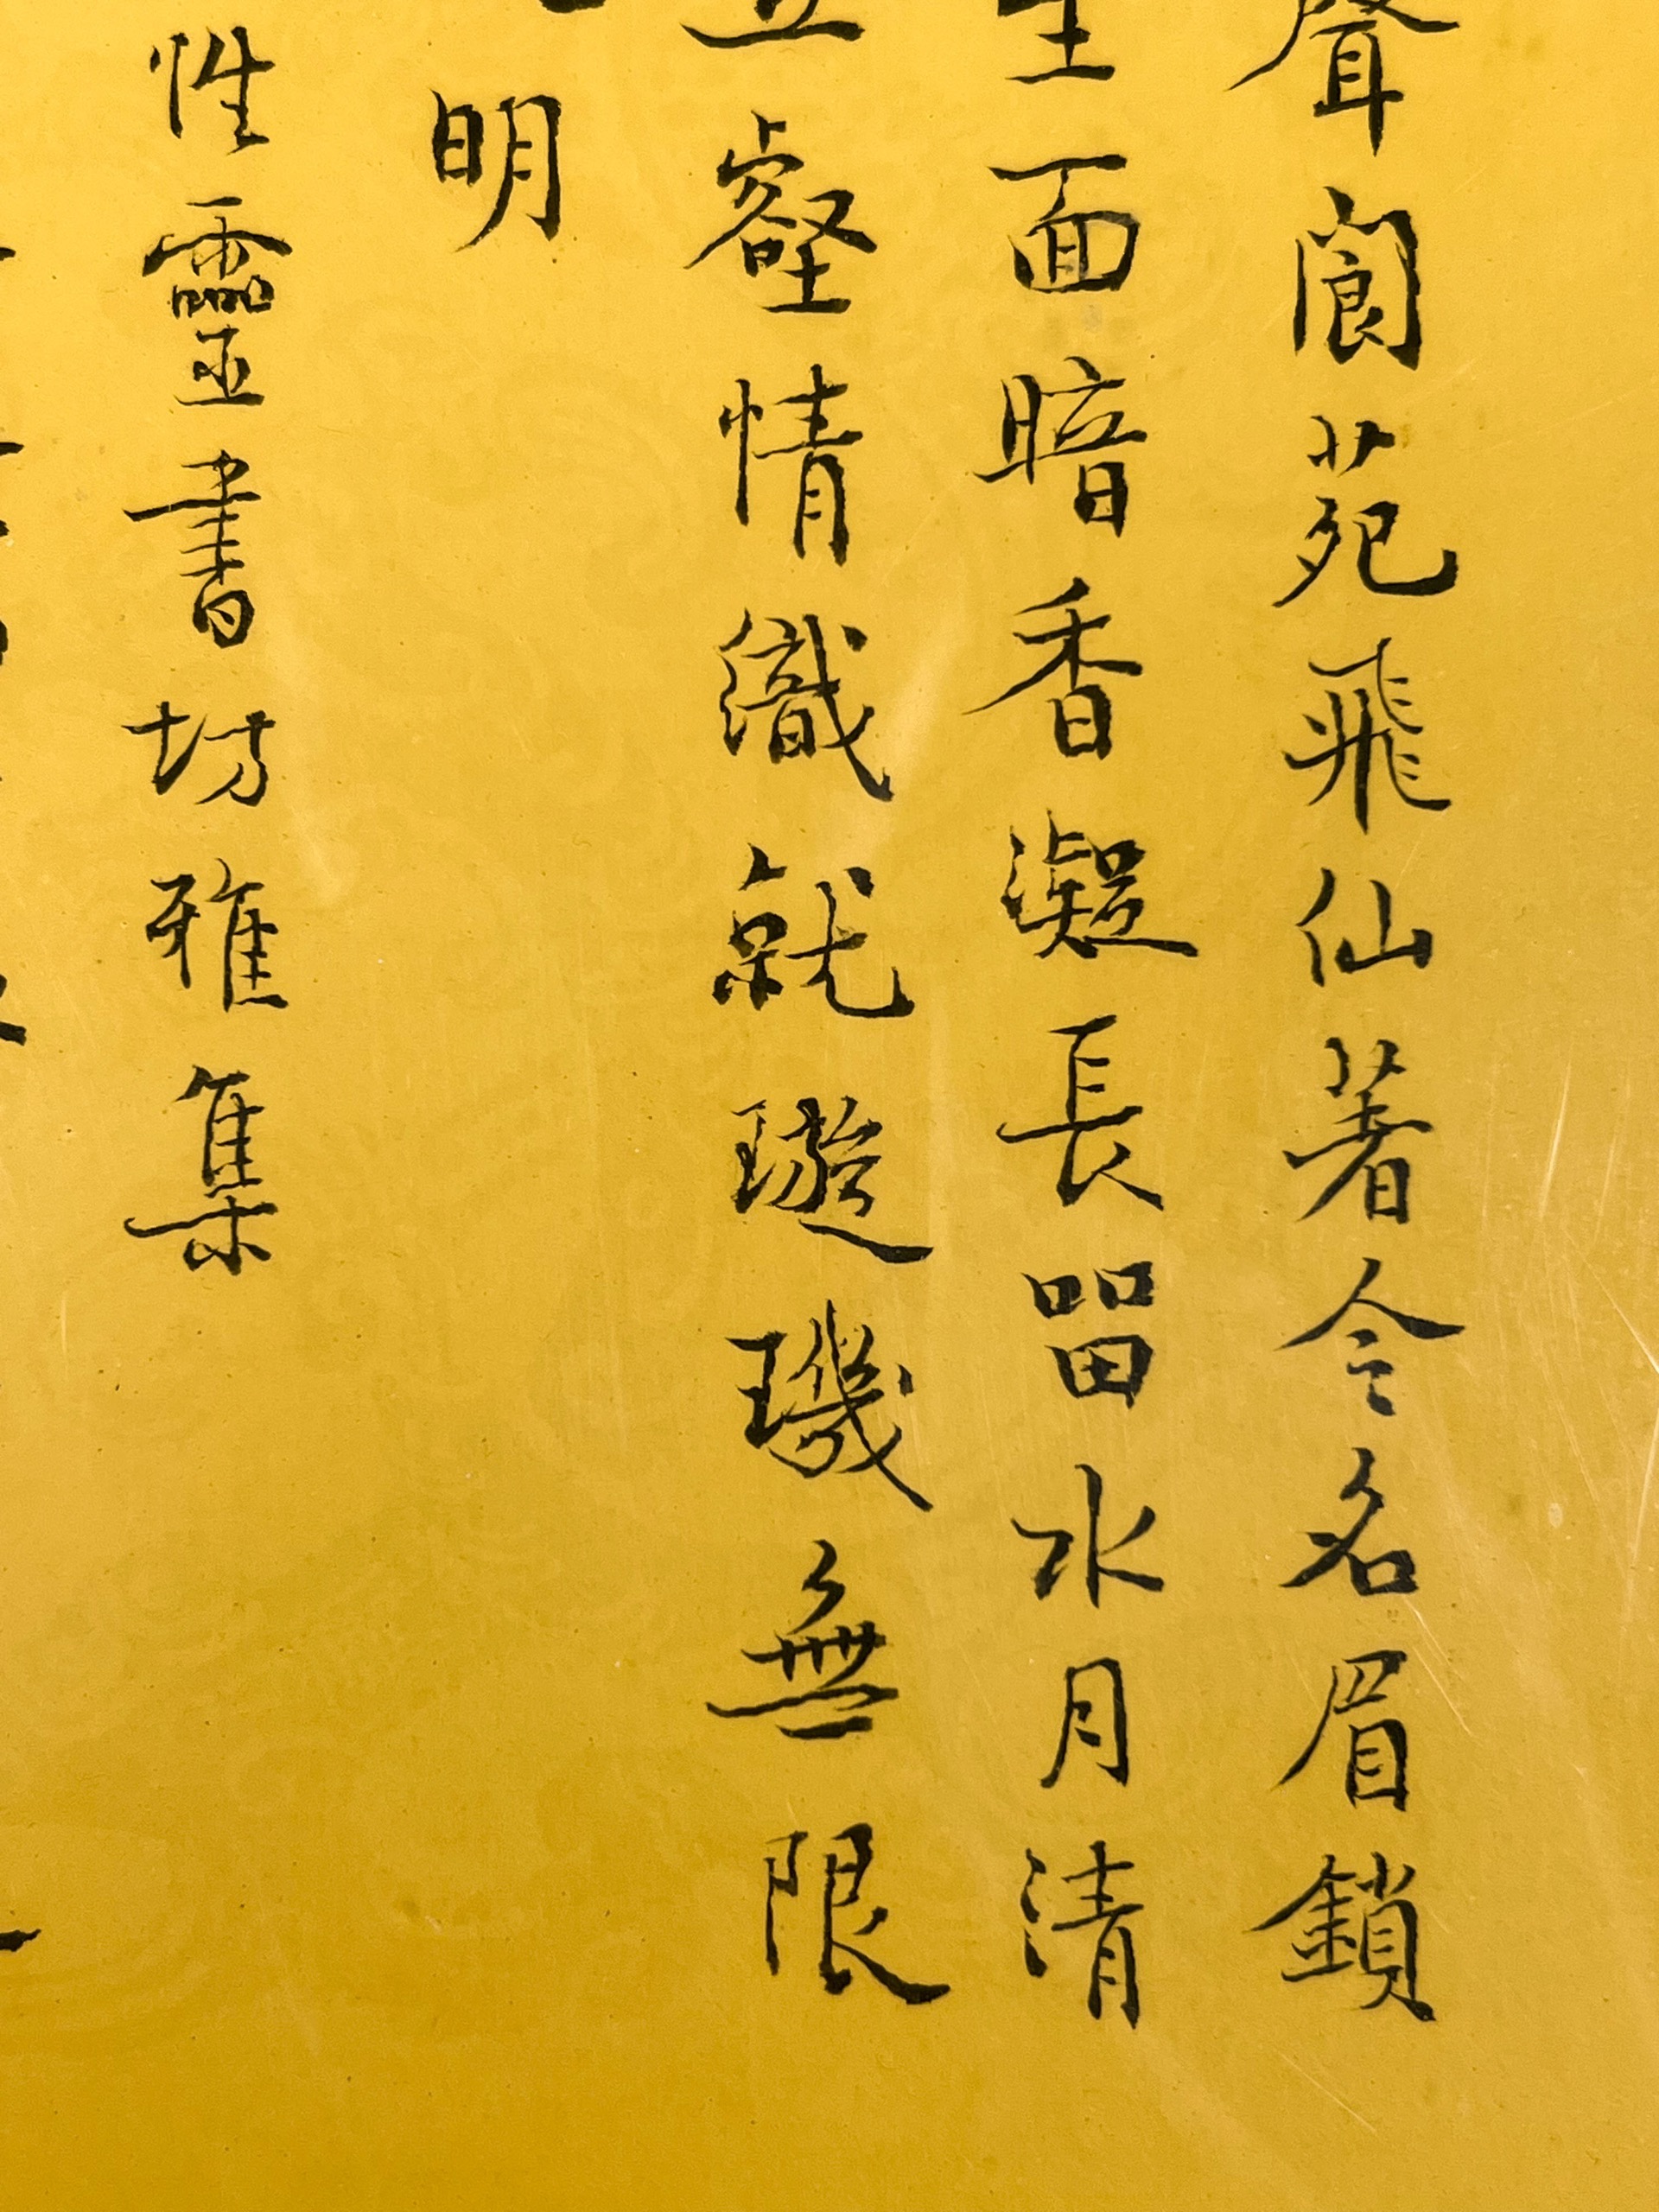 聲閬苑飛仙著令名眉鎖
面暗香凝長留水月清
壑情織就璇璣無限
明
性靈書坊雅集